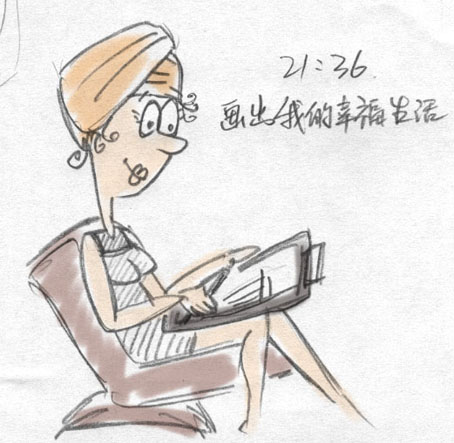 21:36.
画出我的幸福生活